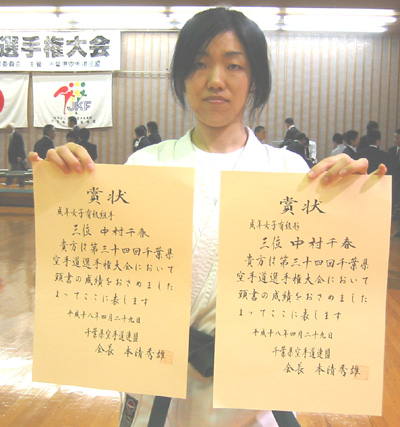 選手権大会
JKF
賞状
成年女子有級組手
三位 中村千春
貴方は第三十四回千葉県
空手道選手権大会において
頭書の成績をおさめました
よってここに表します
平成十八年四月二十九日
千葉県空手道連盟
会長 本清秀雄
賞状
成年女子有級形
三位 中村千春
貴方は第三十四回千葉県
空手道選手権大会において
頭書の成績をおさめました
よってここに表します
平成十八年四月二十九日
千葉県空手道連盟
会長 本清秀雄